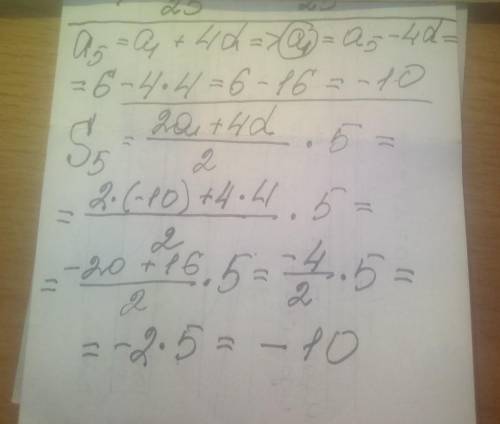 a₅ = a₁ + 4d => a₁ = a₅ - 4d =
= 6 - 4·4 = 6 - 16 = -10
S₅ = (2a₁ + 4d)/2 · 5 =
= (2·(-10) + 4·4)/2 · 5 =
= (-20 + 16)/2 · 5 = (-4)/2 · 5 =
= -2·5 = -10